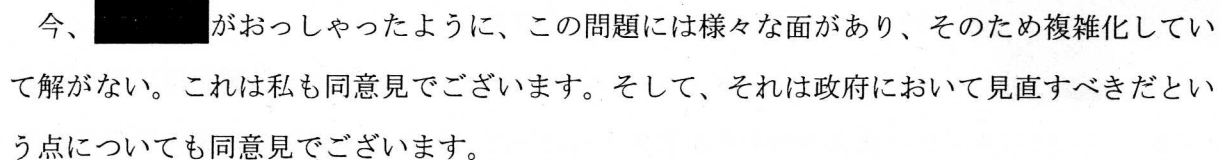 今、がおっしゃったように、この問題には様々な面があり、そのため複雑化してい
て解がない。これは私も同意見でございます。そして、それは政府において見直すべきだとい
う点についても同意見でございます。